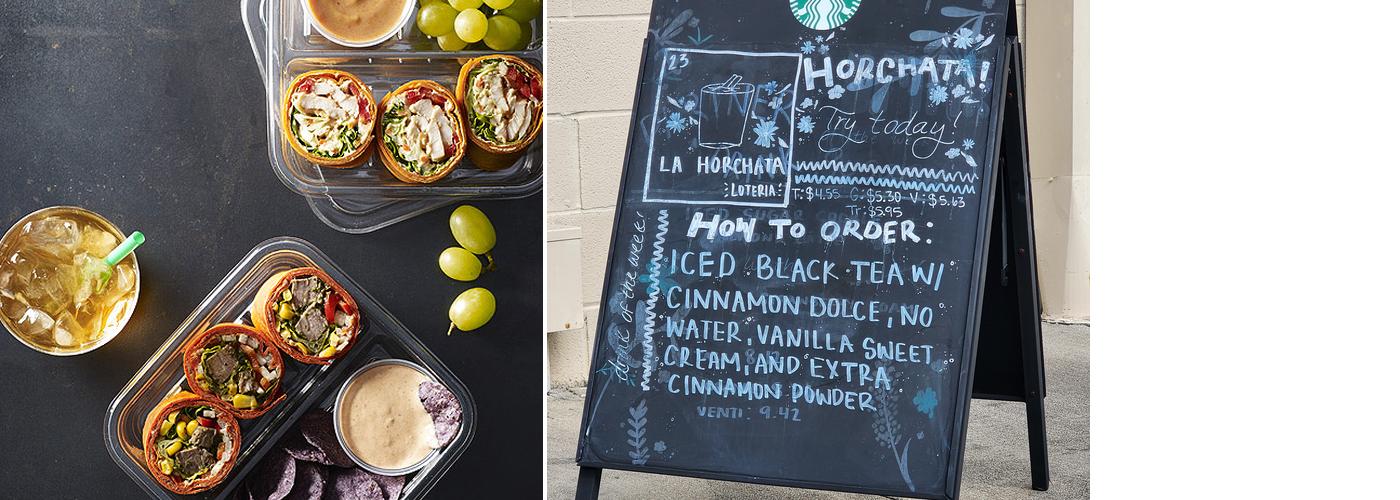 23
HORCHATA!
Try today!
LA HORCHATA
LOTERIA
T: $4.55 G: $5.30 V: $5.63
Tr: $5.95
drink of the week!
HOW TO ORDER:
ICED BLACK TEA W/
CINNAMON DOLCE, NO
WATER, VANILLA SWEET
CREAM, AND EXTRA
CINNAMON POWDER
VENTI: 9.42